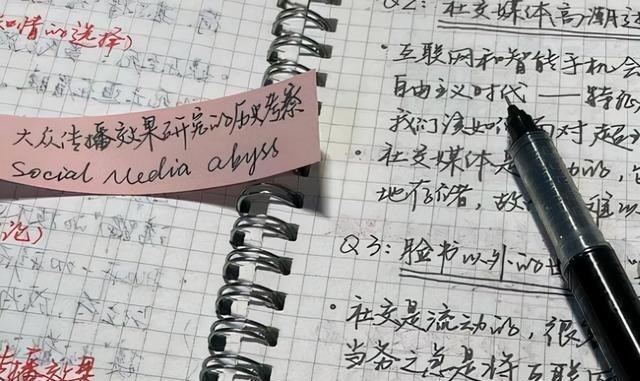 情的选择)
大众传播效果研究的历史考察
Social Media abyss
论)
传播效果
Q2: 社交媒体高潮
· 互联网和智能手机会
自由主义时代 —— 特征
我们该如 面对超
· 社交媒体是 动的,
地存储,故 难以
Q3: 脸书以外的世
· 社交是流动的,很
当务之急是将互联